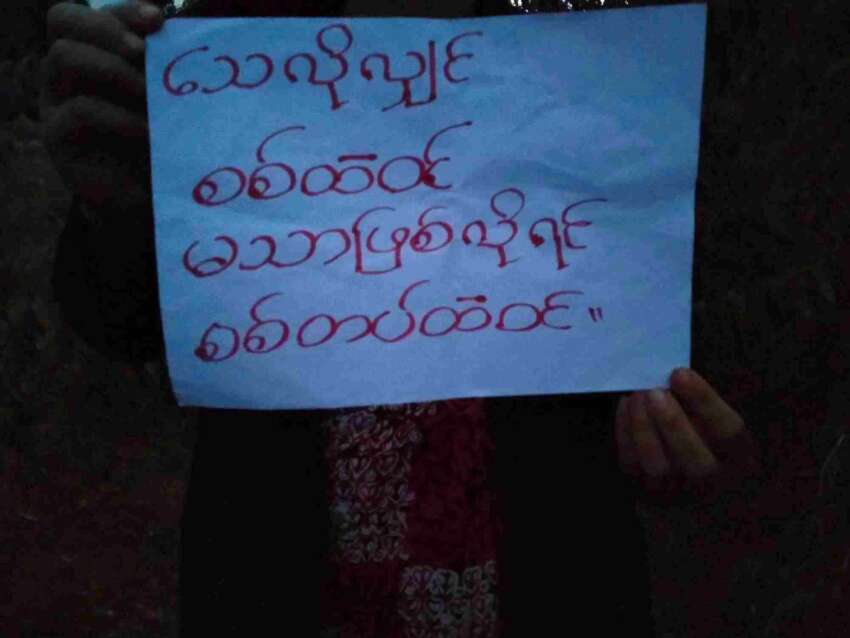 သေလိုလျှင်
စစ်ထဲဝင်
မသာဖြစ်လိုရင်
စစ်တပ်ထဲဝင်။